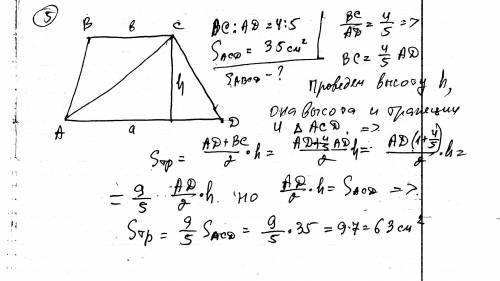 5
B в C
BC:AD = 4:5
S_ACD = 35 см²
S_ABCD - ?
BC/AD = 4/5 =>
BC = 4/5 AD
h
A a D
Проведем высоту h,
она высота и трапеции
и △ ACD. =>
Sтр = (AD+BC)/2 · h = (AD+4/5 AD)/2 · h = AD(1+4/5)/2 · h =
= 9/5 · AD/2 · h. но AD/2 · h = S_ACD =>
Sтр = 9/5 S_ACD = 9/5 · 35 = 9·7 = 63 см²